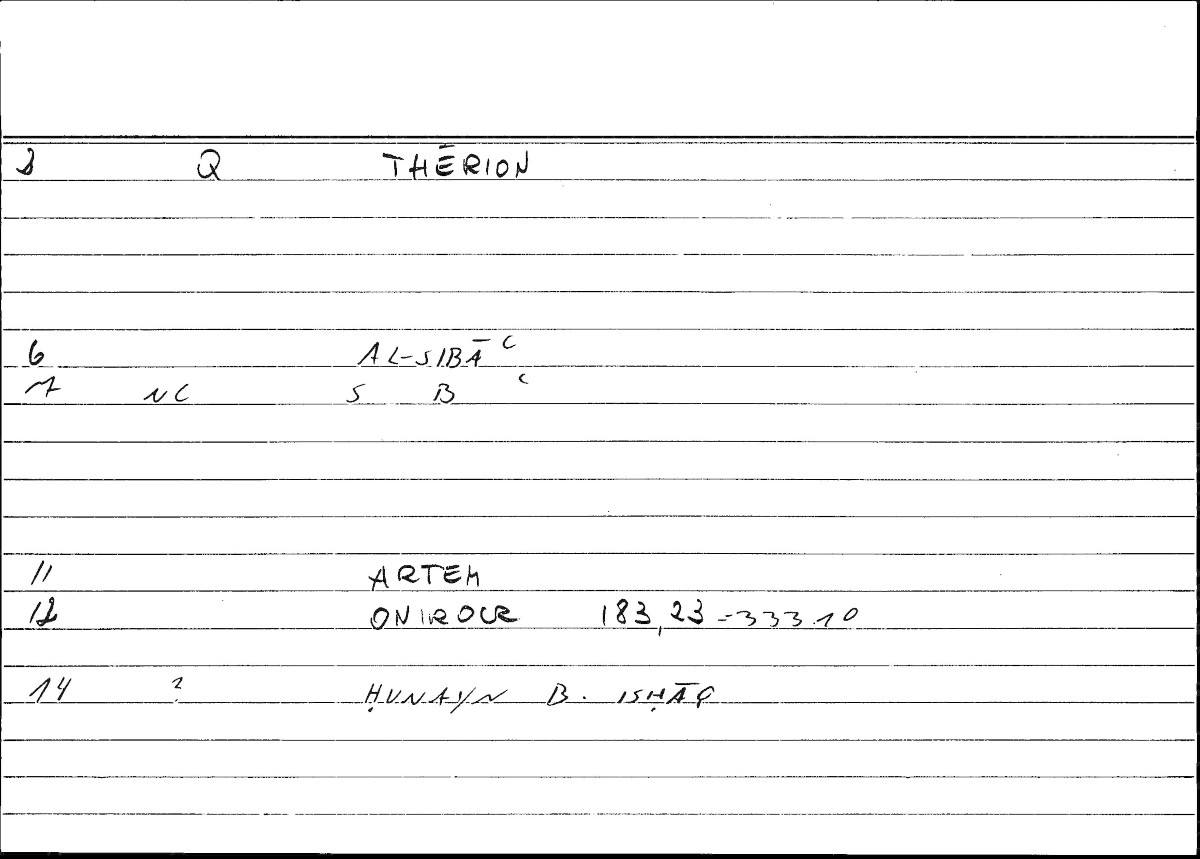 1 Q THĒRION
6 AL-SIBĀʿ
7 NC S B ʿ
11 ARTEM
12 ONIROCR 183,23-333.10
14 ? ḤUNAYN B. ISḤĀQ